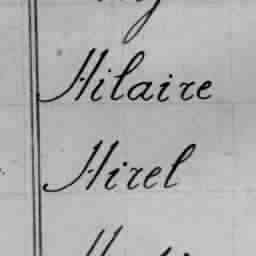 Hilaire
Hirel